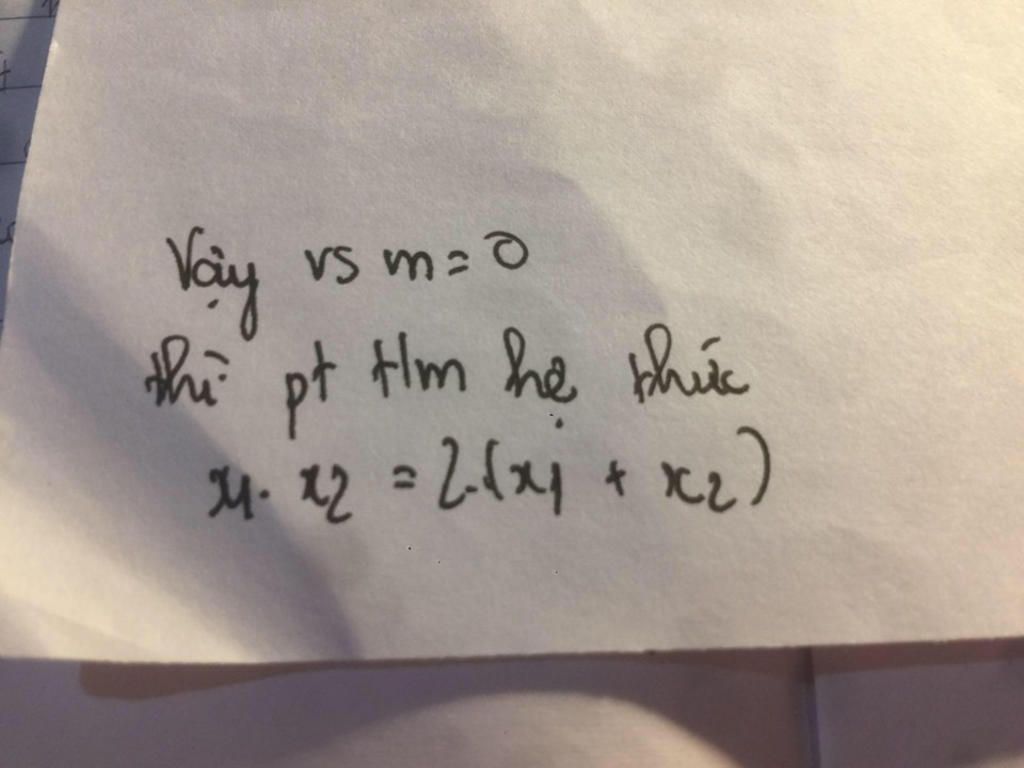 Vậy vs m = 0
thì pt tlm hệ thức
x1 . x2 = 2.(x1 + x2)